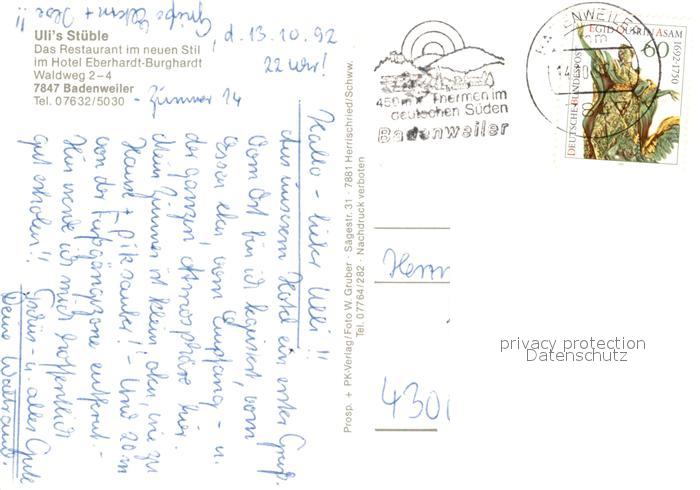 Grüße Eltern + Ilse !!
Uli's Stüble
Das Restaurant im neuen Stil
im Hotel Eberhardt-Burghardt
Waldweg 2-4
7847 Badenweiler
Tel. 07632/5030
- Zimmer 14
, d. 13.10.92
22 Uhr!
Hallo - lieber Ulli !!
Aus unserem Hotel ein erster Gruß.
Vom Ort bin ich begeistert, vom
Essen eben vom Empfang - u.
der ganzen Atmosphäre hier.
Mein Zimmer ist klein aber, wie zu
Hause + pieksauber! - Und 20 m
von der Fußgängerzone entfernt. -
Hier werde ich mich hoffentlich
gut erholen!! Grüß - u. alles Gute
Deine Waltraud.
Prosp. + PK-Verlag/Foto W. Gruber · Sägestr. 31 · 7881 Herrischried/Schww.
Tel. 07764/282 · Nachdruck verboten
450 m Thermen im
deutschen Süden
Badenweiler
BADENWEILER
EGID QUIRIN ASAM
1692-1750
60
DEUTSCHE BUNDESPOST
Herrn
430
privacy protection
Datenschutz